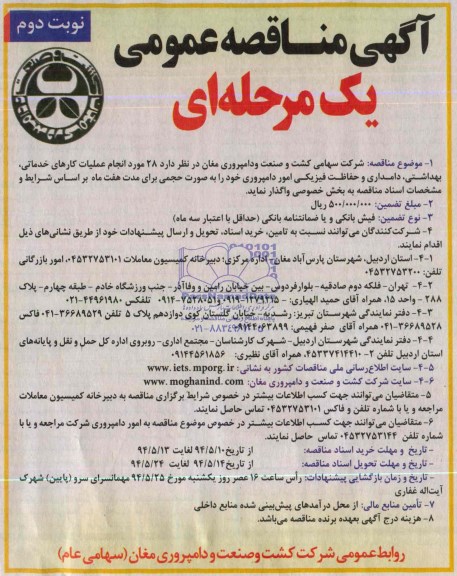 نوبت دوم
آگهی مناقصه عمومی
یک مرحله‌ای
۱- موضوع مناقصه: شرکت سهامی کشت و صنعت ودامپروری مغان در نظر دارد ۲۸ مورد انجام عملیات کارهای خدماتی،
بهداشتی، دامداری و حفاظت فیزیکی امور دامپروری خود را به صورت حجمی برای مدت هفت ماه بر اساس شرایط و
مشخصات اسناد مناقصه به بخش خصوصی واگذار نماید.
۲- مبلغ تضمین: ۵۰۰/۰۰۰/۰۰۰ ریال
۳- نوع تضمین: فیش بانکی و یا ضمانتنامه بانکی (حداقل با اعتبار سه ماه)
۴- شرکت‌کنندگان می‌توانند نسبت به تامین، خرید اسناد، تحویل و ارسال پیشنهادات خود از طریق نشانی‌های ذیل
اقدام نمایند.
۴-۱- استان اردبیل، شهرستان پارس‌آباد مغان- اداره مرکزی؛ دبیرخانه کمیسیون معاملات ۰۴۵۳۲۷۵۳۱۰۱، امور بازرگانی
تلفن: ۰۴۵۳۲۷۵۳۲۰۰
۴-۲- تهران - فلکه دوم صادقیه - بلوارفردوس - بین خیابان رامین و وفاآذر - جنب ورزشگاه خادم - طبقه چهارم- پلاک
۲۸۸ - واحد ۱۵، همراه آقای حمید الهیاری: تلفکس ۴۴۹۶۱۹۸۰-۰۲۱
۴-۳- دفتر نمایندگی شهرستان تبریز: رشدیه- خیابان گلستان کوی دوازدهم پلاک ۵ تلفن ۳۶۶۸۹۵۲۹-۰۴۱ فاکس
۳۶۶۸۹۵۲۸-۰۴۱ همراه آقای صفر فهیمی: ۰۹۱۴۴۰۶۳۸۹۹
۴-۴- دفتر نمایندگی شهرستان اردبیل- شهرک کارشناسان- مجتمع اداری- روبروی اداره کل حمل و نقل و پایانه‌های
استان اردبیل تلفن ۲-۰۴۵۳۳۷۴۱۴۴۱۰، همراه آقای نظیری: ۰۹۱۴۴۵۶۱۸۵۶
۴-۵- سایت اطلاع‌رسانی ملی مناقصات کشور به نشانی: www.iets.mporg.ir
۴-۶- سایت شرکت کشت و صنعت و دامپروری مغان: www.moghanind.com
۵- متقاضیان می‌توانند جهت کسب اطلاعات بیشتر در خصوص شرایط برگزاری مناقصه به دبیرخانه کمیسیون معاملات
مراجعه و یا با شماره تلفن و فاکس ۰۴۵۳۲۷۵۳۱۰۱ تماس حاصل نمایند.
۶- متقاضیان می‌توانند جهت کسب اطلاعات بیشتر در خصوص موضوع مناقصه به امور دامپروری شرکت مراجعه و یا با
شماره تلفن ۰۴۵۳۲۷۵۳۱۴۴ تماس حاصل نمایند.
- تاریخ و مهلت خرید اسناد مناقصه: از تاریخ ۹۴/۵/۱۰ لغایت ۹۴/۵/۱۳
- تاریخ و مهلت تحویل اسناد مناقصه: از تاریخ ۹۴/۵/۱۴ لغایت ۹۴/۵/۲۴
- تاریخ و زمان بازگشایی پیشنهادات: رأس ساعت ۱۶ عصر روز یکشنبه مورخ ۹۴/۵/۲۵ مهمانسرای سرو (پایین) شهرک
آیت‌اله غفاری
۷- تأمین منابع مالی: از محل درآمدهای پیش‌بینی شده منابع داخلی
۸- هزینه درج آگهی بعهده برنده مناقصه می‌باشد.
روابط عمومی شرکت کشت وصنعت و دامپروری مغان (سهامی عام)